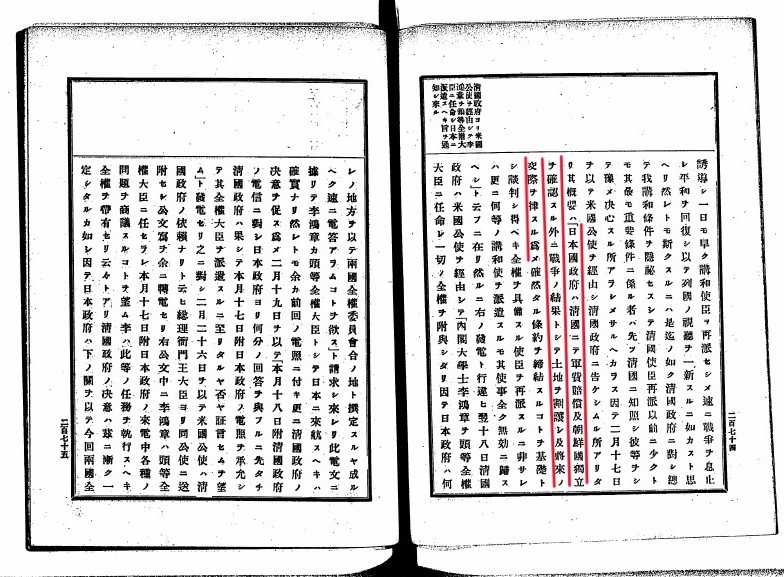 二百七十四
清國政府ヨリ米國
公使ヲ經由シテ李
鴻章ヲ頭等全權大
臣ニ任命シ日本ニ
派遣スヘキ旨ヲ通
知シ來ル
誘導シ一日モ早ク講和使臣ヲ再派セシメ速ニ戰爭ヲ息止
シ平和ヲ回復シ以テ列國ノ視聽ヲ一新スルニ如カスト思
ヘリ然レトモ斯クスルニハ是迄ノ如ク清國政府ニ對シ總
テ我講和條件ヲ隱祕セスシテ清國使臣再派以前ニ少クト
モ其最モ重要條件ニ係ル者ハ先ツ清國ニ知照シ彼等ヲシ
テ豫メ決心スル所アラシメサルヘカラス因テ二月十七日
ヲ以テ米國公使ヲ經由シ清國政府ニ吿ケシムル所アリタ
リ其概要ハ「日本國政府ハ清國ニテ軍費賠償及朝鮮國獨立
ヲ確認スル外ニ戰爭ノ結果トシテ土地ヲ割讓シ及將來ノ
交際ヲ律スル爲メ確然タル條約ヲ締結スルコトヲ基礎ト
シ談判シ得ヘキ全權ヲ具備スル使臣ヲ再派スルニ非サレ
ハ更ニ何等ノ講和使ヲ派遣スルモ其使事全ク無効ニ歸ス
ヘシ」ト云フニ在リ然ルニ右ノ發電ト行違ヒ翌十八日清國
政府ハ米國公使ヲ經由シテ「內閣大學士李鴻章ヲ頭等全權
大臣ニ任命シ一切ノ全權ヲ附與シタリ因テ日本政府ハ何
レノ地方ヲ以テ兩國全權委員會合ノ地ト撰定スルヤ成ル
ヘク速ニ電答アラムコトヲ欲ス」ト請求シ來レリ此電文ニ
據リテ李鴻章カ頭等全權大臣トシテ日本ニ來航スヘキハ
確實ナリ然レトモ余カ前回ノ電照ニ付キ更ニ清國政府ノ
決意ヲ促ス爲メ二月十九日ヲ以テ「本月十八附清國政府
ノ電信ニ對シ日本政府ヨリ何分ノ回答ヲ與フルニ先タチ
清國政府ハ果シテ本月十七日附日本政府ノ電照ヲ承允シ
テ其全權大臣ヲ派遣スルニ至リタルヤ否ヤ証言セムヲ望
ム」ト發電セリ之ニ對シ二月二十六日ヲ以テ米國公使ハ清
國政府ノ依賴ナリト云ヒ總理衙門王大臣ヨリ同公使ニ送
附セシ公文寫ヲ余ニ轉電セリ右公文中ニ李鴻章ハ頭等全
權大臣ニ任セラレ本月十七日附日本政府ノ來電中各種ノ
問題ヲ商議スルコトヲ望ム李ハ此等ノ任務ヲ執行スヘキ
全權ヲ帶有セリ云々トアリ清國政府ノ決意ハ玆ニ漸ク一
定シタルカ如シ因テ日本政府ハ下ノ關ヲ以テ今回兩國全
二百七十五